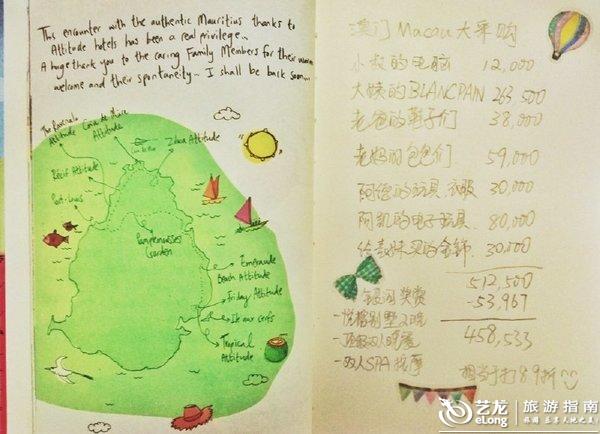 This encounter with the authentic Mauritius thanks to
Attitude hotels has been a real privilege...
A huge thank you to the caring Family Members for their warm
welcome and their spontaneity... I shall be back soon...
The Ravenala
Attitude
Coin de Mire
Attitude
Zilwa Attitude
Récif Attitude
Port-Louis
Pamplemousses
Garden
Emeraude
Beach Attitude
Friday Attitude
Ile aux Cerfs
Tropical
Attitude
澳门 Macau 大采购
小叔的电脑 12,000
大姨的BLANCPAIN 263,500
老爸的鞋子们 38,000
老妈的包包们 59,000
阿伦的玩具、衣服 30,000
阿凯的电子玩具 80,000
给表妹买的金饰 30,000
512,500
奖赏 -53,967
458,533
-悦榕别墅2晚
-双人晚宴
-双人SPA按摩
相当于打8.9折
艺龙 旅游指南
eLong